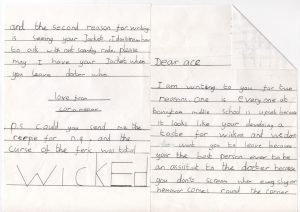 Dear ace
I am writing to you for two
reasons one is everyone at
school is upset because
it looks like your
taste for
want you to leave because
your the best person ever to be
an assistant to the doctor because
you don't scream when every slimy
comes round the corner
and the second reason for writing
is seeing your Jacket I
to ask with not sounding rude, please
may I have your Jacket when
you leave doctor who
love from
P.S could you send me the
for me and the
curse of the feric was total
WICKEd